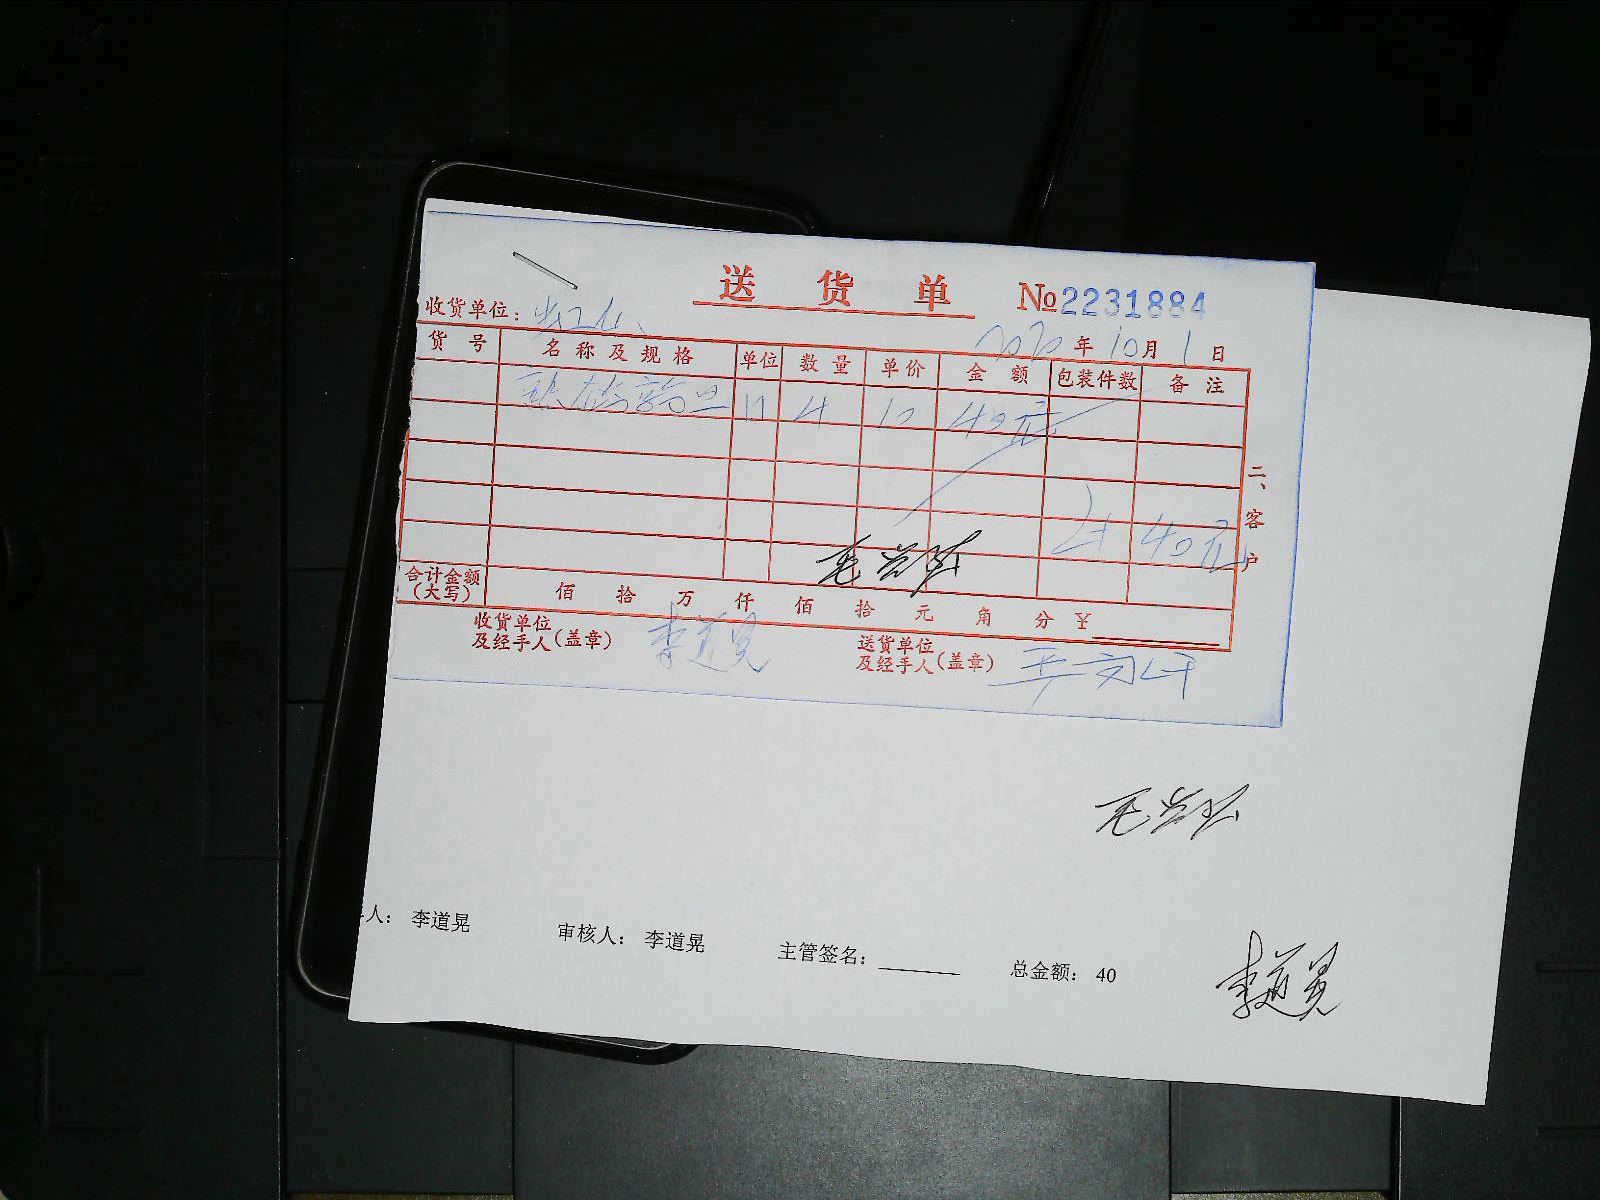 送货单 №2231884
收货单位：
2020年10月1日
货号 名称及规格 单位 数量 单价 金额 包装件数 备注
4 10 40元
二、客户
计 40元
毛
合计金额（大写） 佰 拾 万 仟 佰 拾 元 角 分 ¥
收货单位及经手人（盖章） 李道晃 送货单位及经手人（盖章）
毛
人： 李道晃 审核人： 李道晃 主管签名： 总金额： 40
李道晃